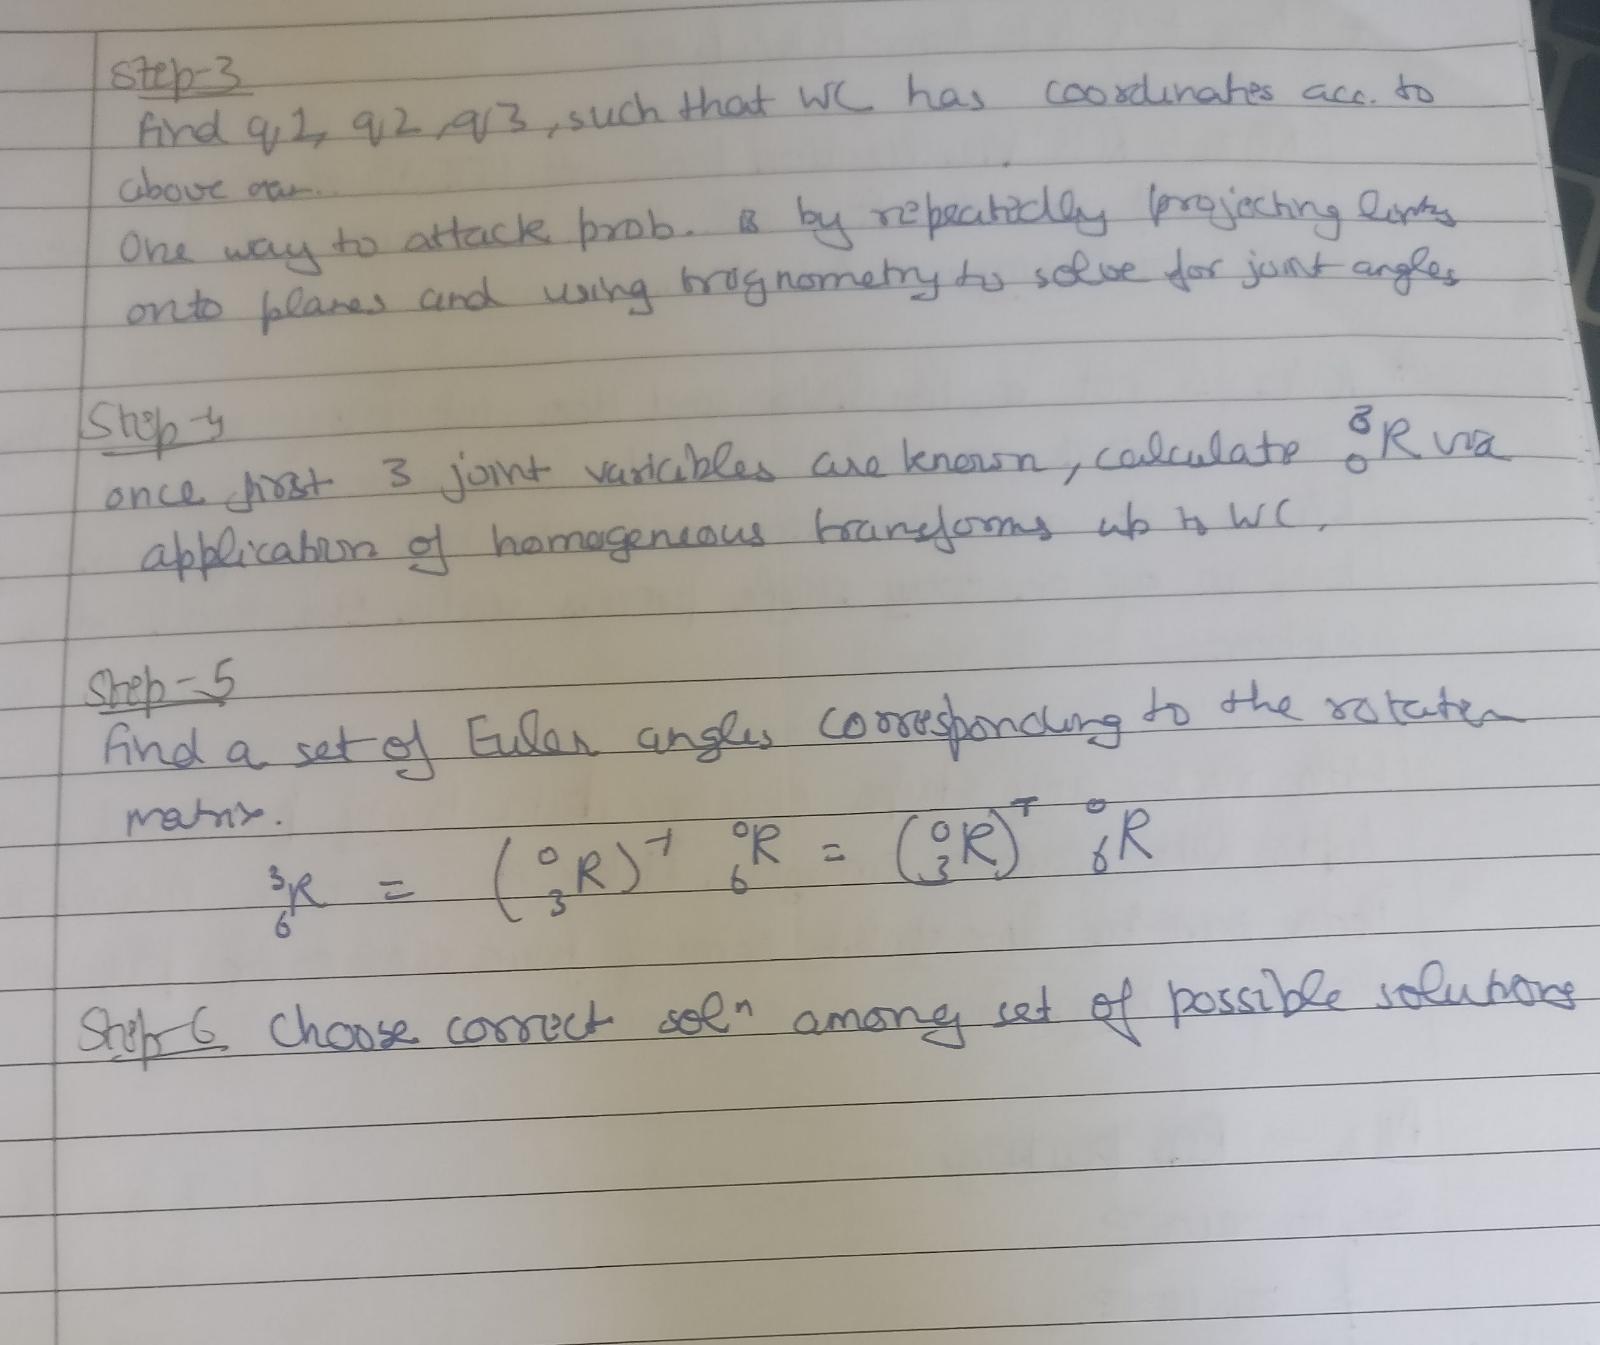 Step-3
find q1, q2, q3, such that WC has coordinates acc. to
above
One way to attack prob. is by repeatedly projecting links
onto planes and using trignometry to solve for joint angles
Step-4
once first 3 joint variables are known, calculate ³₀R via
application of homogeneous transforms up to WC.
Step-5
find a set of Euler angles corresponding to the rotation
matrix.
³₆R = (⁰₃R)⁻¹ ⁰₆R = (⁰₃R)ᵀ ⁰₆R
Step-6 Choose correct solⁿ among set of possible solutions